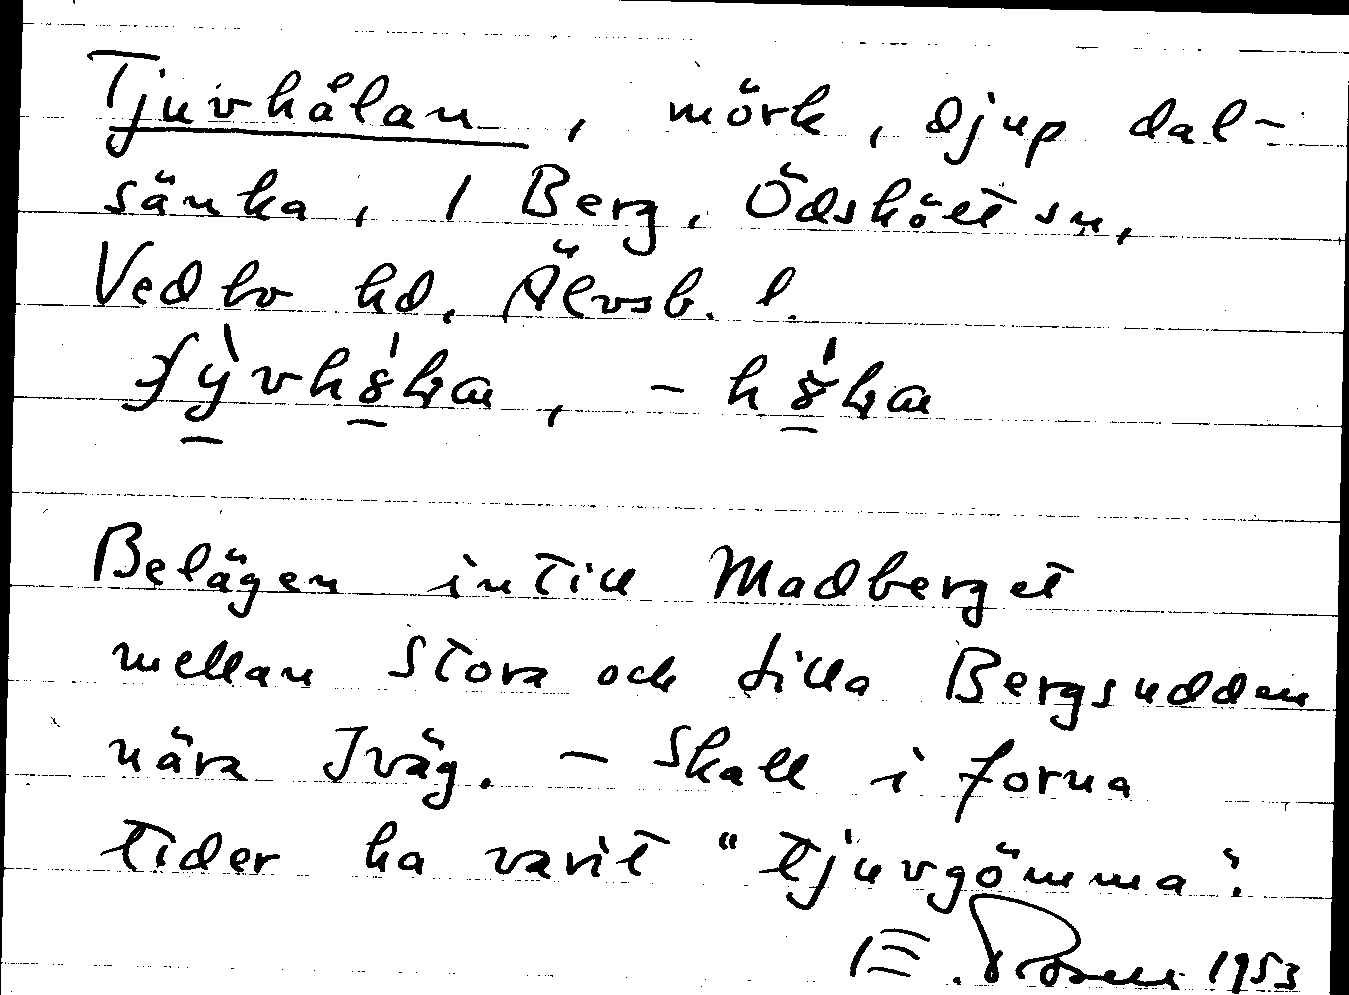 Tjuvhålan, mörk, djup dal-
sänka, 1 Berg, Ödskölt sn,
Vedbo hd, Älvsb. l.
Belägen intill Madberget
mellan Stora och Lilla Bergsudden
nära Iväg. – Skall i forna
tider ha varit "tjuvgömma".
E. 1953